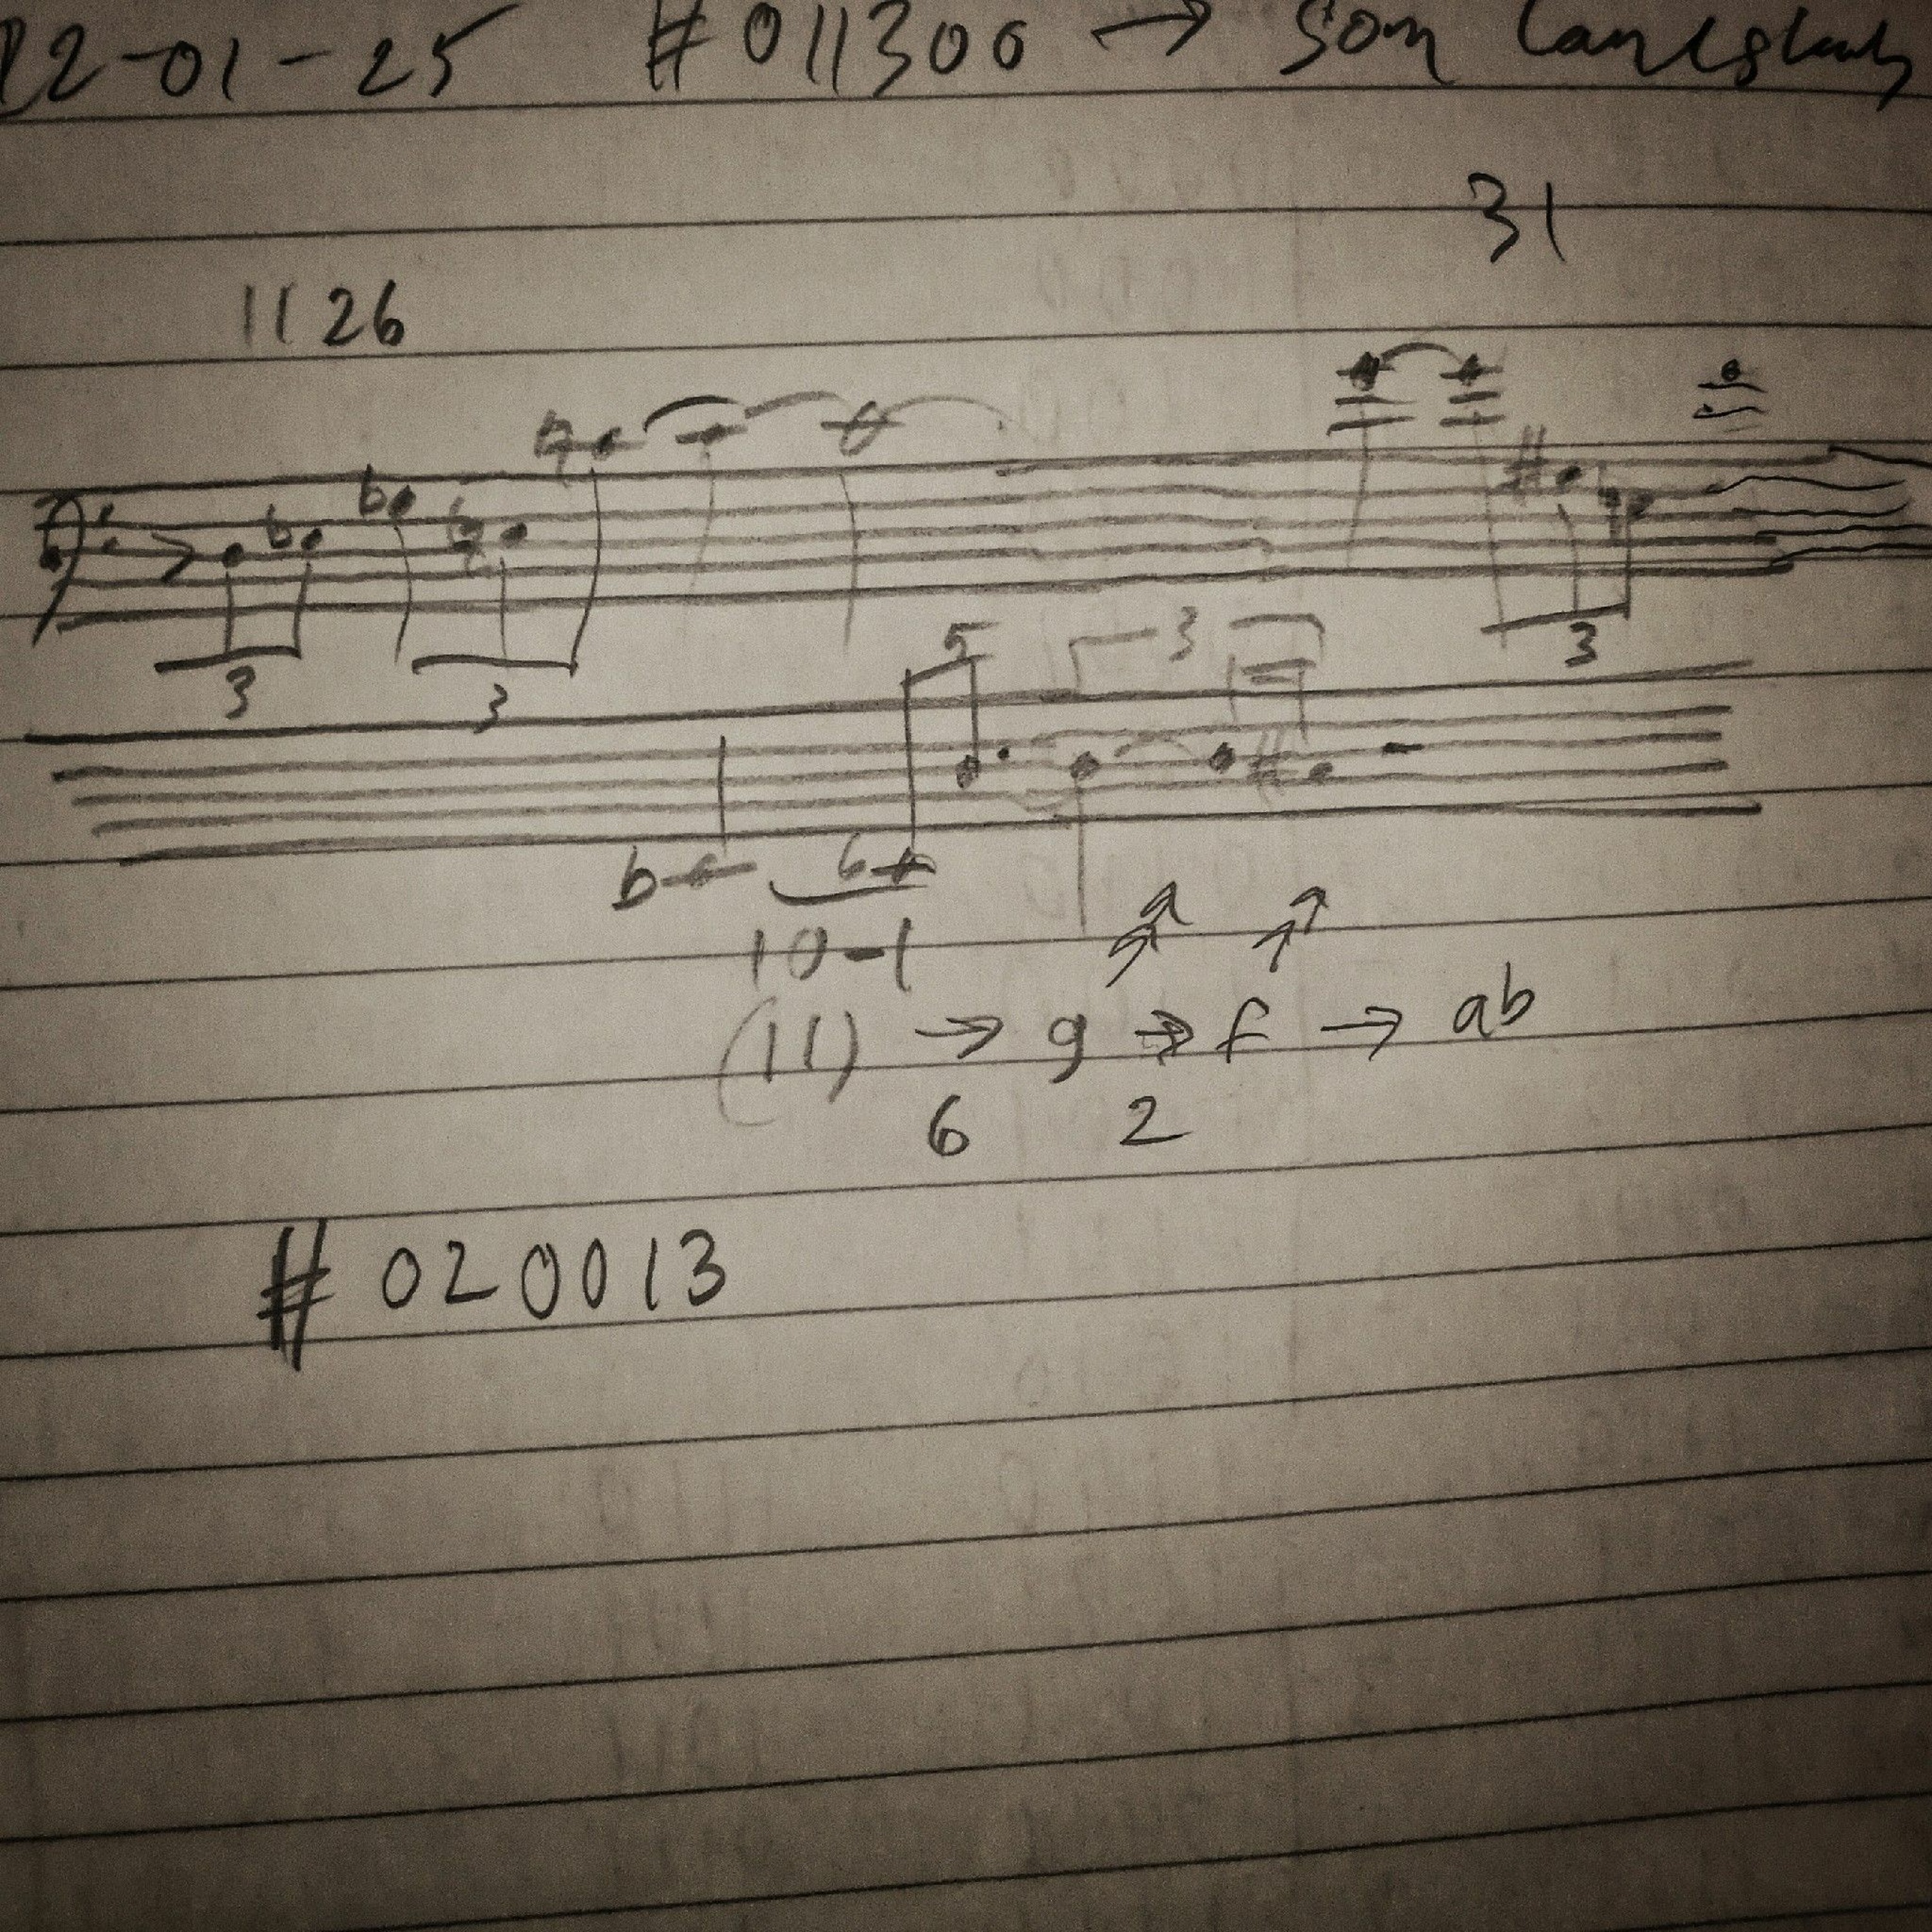 12-01-25 #011300 → som
31
1126
3 3 3
5 3
b 6
10-1
(11) → g → f → ab
6 2
# 020013